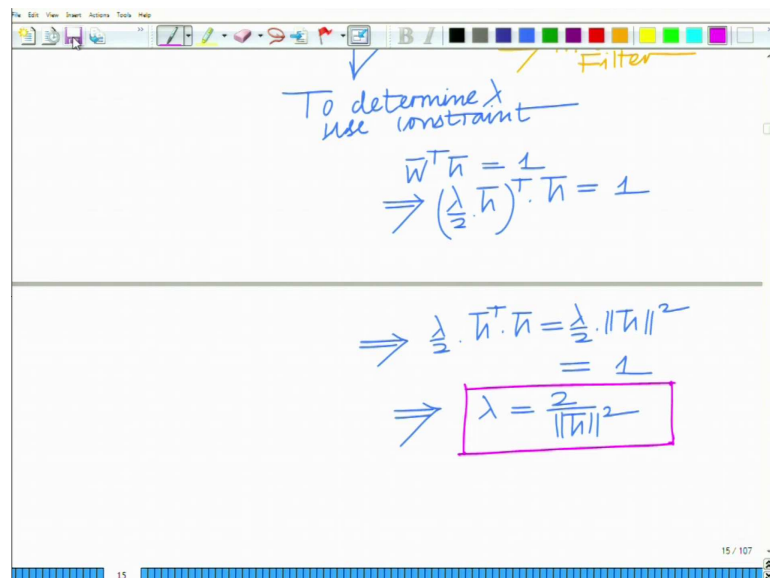 File Edit View Insert Actions Tools Help
B I
Filter
To determine λ
use constraint
w̄ᵀ h̄ = 1
⇒ (λ/2 · h̄)ᵀ · h̄ = 1
⇒ λ/2 · h̄ᵀ · h̄ = λ/2 · ||h̄||²
= 1
⇒ λ = 2/||h̄||²
15 / 107
15